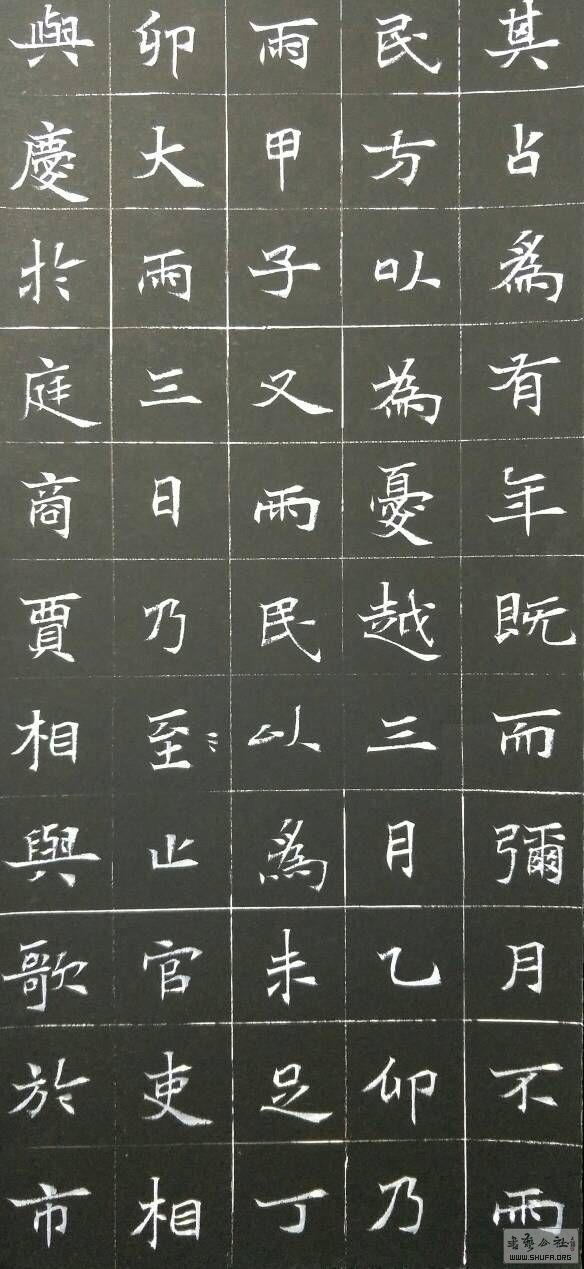 其占爲有年既而彌月不雨
民方以為憂越三月乙卯乃
雨甲子又雨民以爲未足丁
卯大雨三日乃至止官吏相
與慶於庭商賈相與歌於市
書藝公社
WWW.SHUFA.ORG